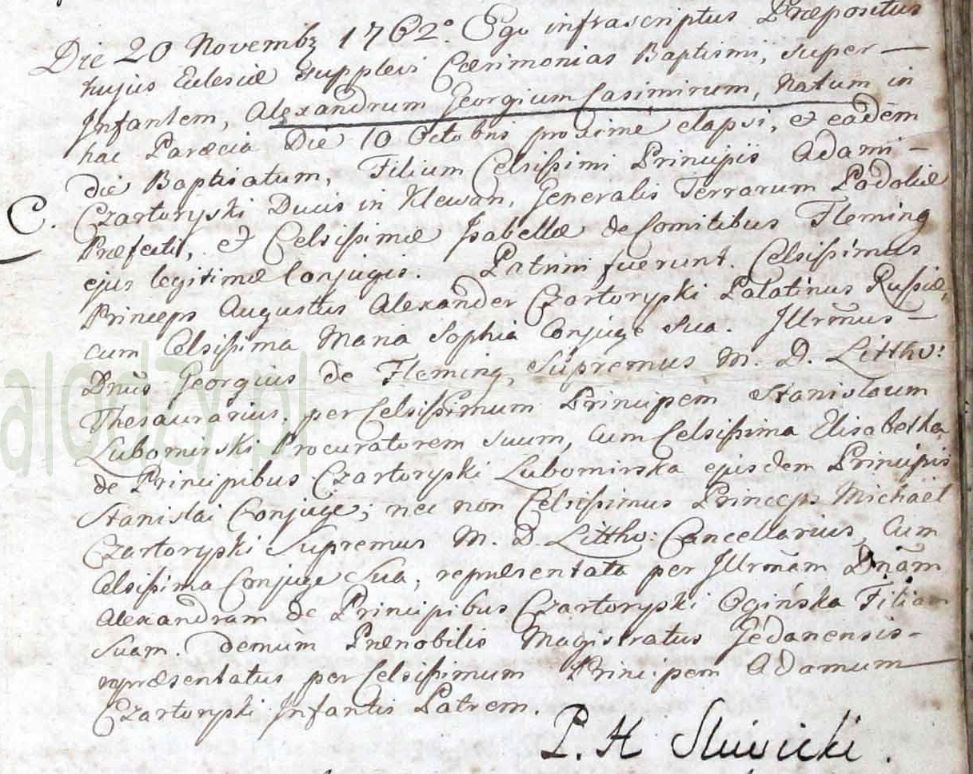 Die 20 Novembr 1762° Ego infrascriptus Præpositus
hujus Eclesiæ supplevi Cærimonias Baptismi, super
Infantem, Alexandrum Georgium Casimirum, Natum in
hac Paræcia Die 10 Octobris proxime elapsi, et eadem
die Baptisatum, Filium Celsissimi Principis Adami
C. Czartoryski Ducis in Klewan, Generalis Terrarum Podoliæ
Præfecti, et Celsissimæ Isabellæ de Comitibus Fleming
ejus legitimæ Conjugis. Patrini fuerunt. Celsissimus
Princeps Augustus Alexander Czartoryski Palatinus Russiæ,
cum Celsissima Maria Sophia Conjuge sua. Illrmus
Dnus Georgius de Fleming, Supremus M. D. Litthv:
Thesaurarius, per Celsissimum Principem Stanislaum
Lubomirski Procuratorem suum, cum Celsissima Elisabetha,
de Principibus Czartoryski Lubomirska ejusdem Principis
Stanislai Conjuge; nec non Celsissimus Princeps Michaël
Czartoryski Supremus M. D. Litthv: Cancellarius, cum
Celsissima Conjuge sua, repræsentata per Illrmam Dnam
Alexandram de Principibus Czartoryski Ogińska Filiam
suam. demum Prænobilis Magistratus Gedanensis
repræsentatus per Celsissimum Principem Adamum
Czartoryski Infantis Patrem.
P. H Sliwicki.
alodzy.pl